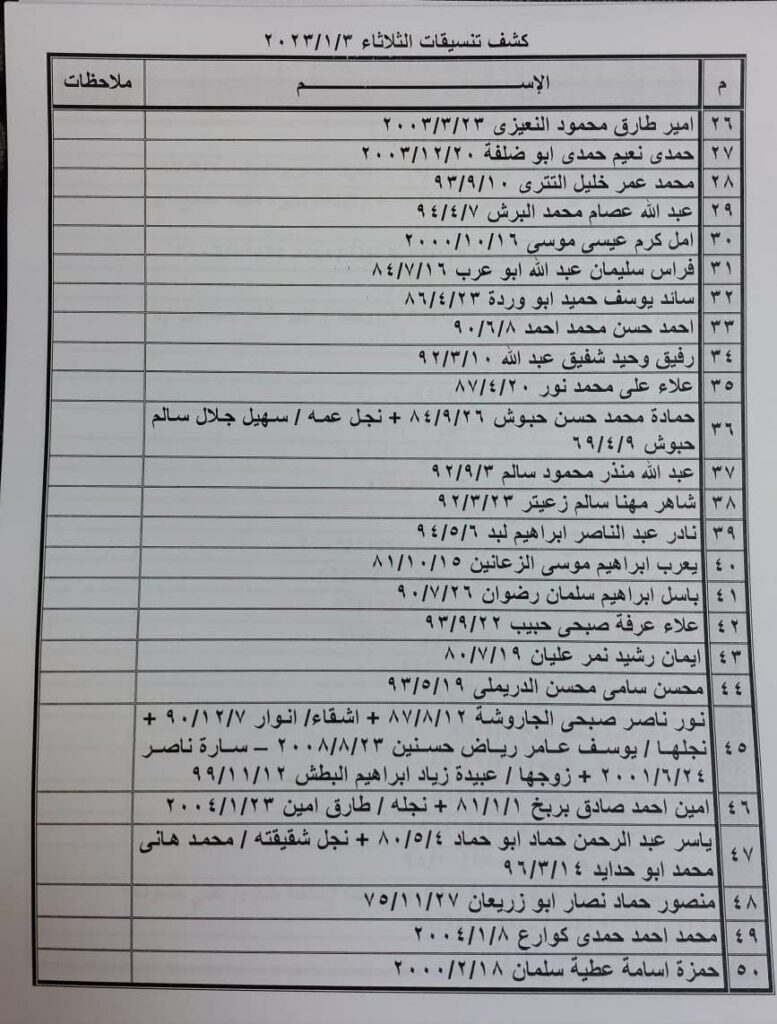 كشف تنسيقات الثلاثاء ٢٠٢٣/١/٣
م الإســـــــــم ملاحظات
٢٦ امير طارق محمود النعيزى ٢٠٠٣/٣/٢٣
٢٧ حمدى نعيم حمدى ابو ضلفة ٢٠٠٣/١٢/٢٠
٢٨ محمد عمر خليل التترى ٩٣/٩/١٠
٢٩ عبد الله عصام محمد البرش ٩٤/٤/٧
٣٠ امل كرم عيسى موسى ٢٠٠٠/١٠/١٦
٣١ فراس سليمان عبد الله ابو عرب ٨٤/٧/١٦
٣٢ سائد يوسف حميد ابو وردة ٨٦/٤/٢٣
٣٣ احمد حسن محمد احمد ٩٠/٦/٨
٣٤ رفيق وحيد شفيق عبد الله ٩٢/٣/١٠
٣٥ علاء على محمد نور ٨٧/٤/٢٠
٣٦ حمادة محمد حسن حبوش ٨٤/٩/٢٦ + نجل عمه / سهيل جلال سالم
حبوش ٦٩/٤/٩
٣٧ عبد الله منذر محمود سالم ٩٢/٩/٣
٣٨ شاهر مهنا سالم زعيتر ٩٢/٣/٢٣
٣٩ نادر عبد الناصر ابراهيم لبد ٩٤/٥/٦
٤٠ يعرب ابراهيم موسى الزعانين ٨١/١٠/١٥
٤١ باسل ابراهيم سلمان رضوان ٩٠/٧/٢٦
٤٢ علاء عرفة صبحى حبيب ٩٣/٩/٢٢
٤٣ ايمان رشيد نمر عليان ٨٠/٧/١٩
٤٤ محسن سامى محسن الدريملى ٩٣/٥/١٩
نور ناصر صبحى الجاروشة ٨٧/٨/١٢ + اشقاء/ انوار ٩٠/١٢/٧ +
٤٥ نجلها / يوسف عامر رياض حسنين ٢٠٠٨/٨/٢٣ – سارة ناصر
٢٠٠١/٦/٢٤ + زوجها / عبيدة زياد ابراهيم البطش ٩٩/١١/١٢
٤٦ امين احمد صادق بربخ ٨١/١/١ + نجله / طارق امين ٢٠٠٤/١/٢٣
٤٧ ياسر عبد الرحمن حماد ابو حماد ٨٠/٥/٤ + نجل شقيقته / محمد هانى
محمد ابو حدايد ٩٦/٣/١٤
٤٨ منصور حماد نصار ابو زريعان ٧٥/١١/٢٧
٤٩ محمد احمد حمدى كوارع ٢٠٠٤/١/٨
٥٠ حمزة اسامة عطية سلمان ٢٠٠٠/٢/١٨